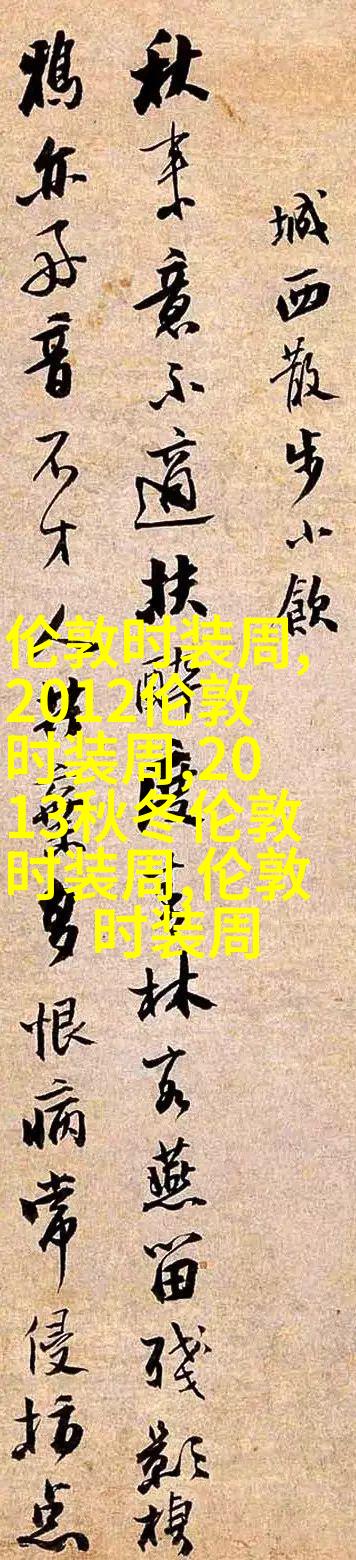 城西散步小飲
秋来意不適扶醉度林客燕留残影
鴉亦好音不才人共棄多恨病常侵点
伦敦时装周,
2012伦敦
时装周,20
13秋冬伦敦
时装周,伦敦
时装周